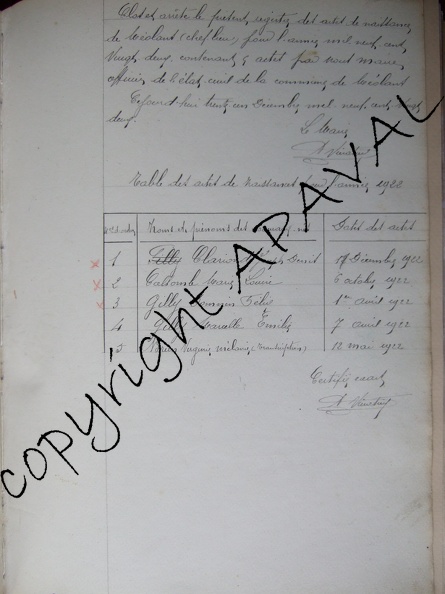 Clos et arrêté le présent registre des actes de naissance
de Méolans (chef lieu) pour l'année mil neuf cent
Vingt deux, contenant 5 actes par nous maire
officier de l'état civil de la commune de Méolans
trente un Décembre mil neuf cent Vingt
deux.
Le Maire
Table des actes de Naissances pour l'année 1922
Noms et prénoms des Dates des actes
1 Gilly Clarion Denis Décembre 1922
2 Marie Louise 6 octobre 1922
3 Gilly Félix 1er avril 1922
4 Gilly Emile 7 avril 1922
5 Virginie Mélanie (Transcription) 12 mai 1922
Certifié exact
copyright APAVAL